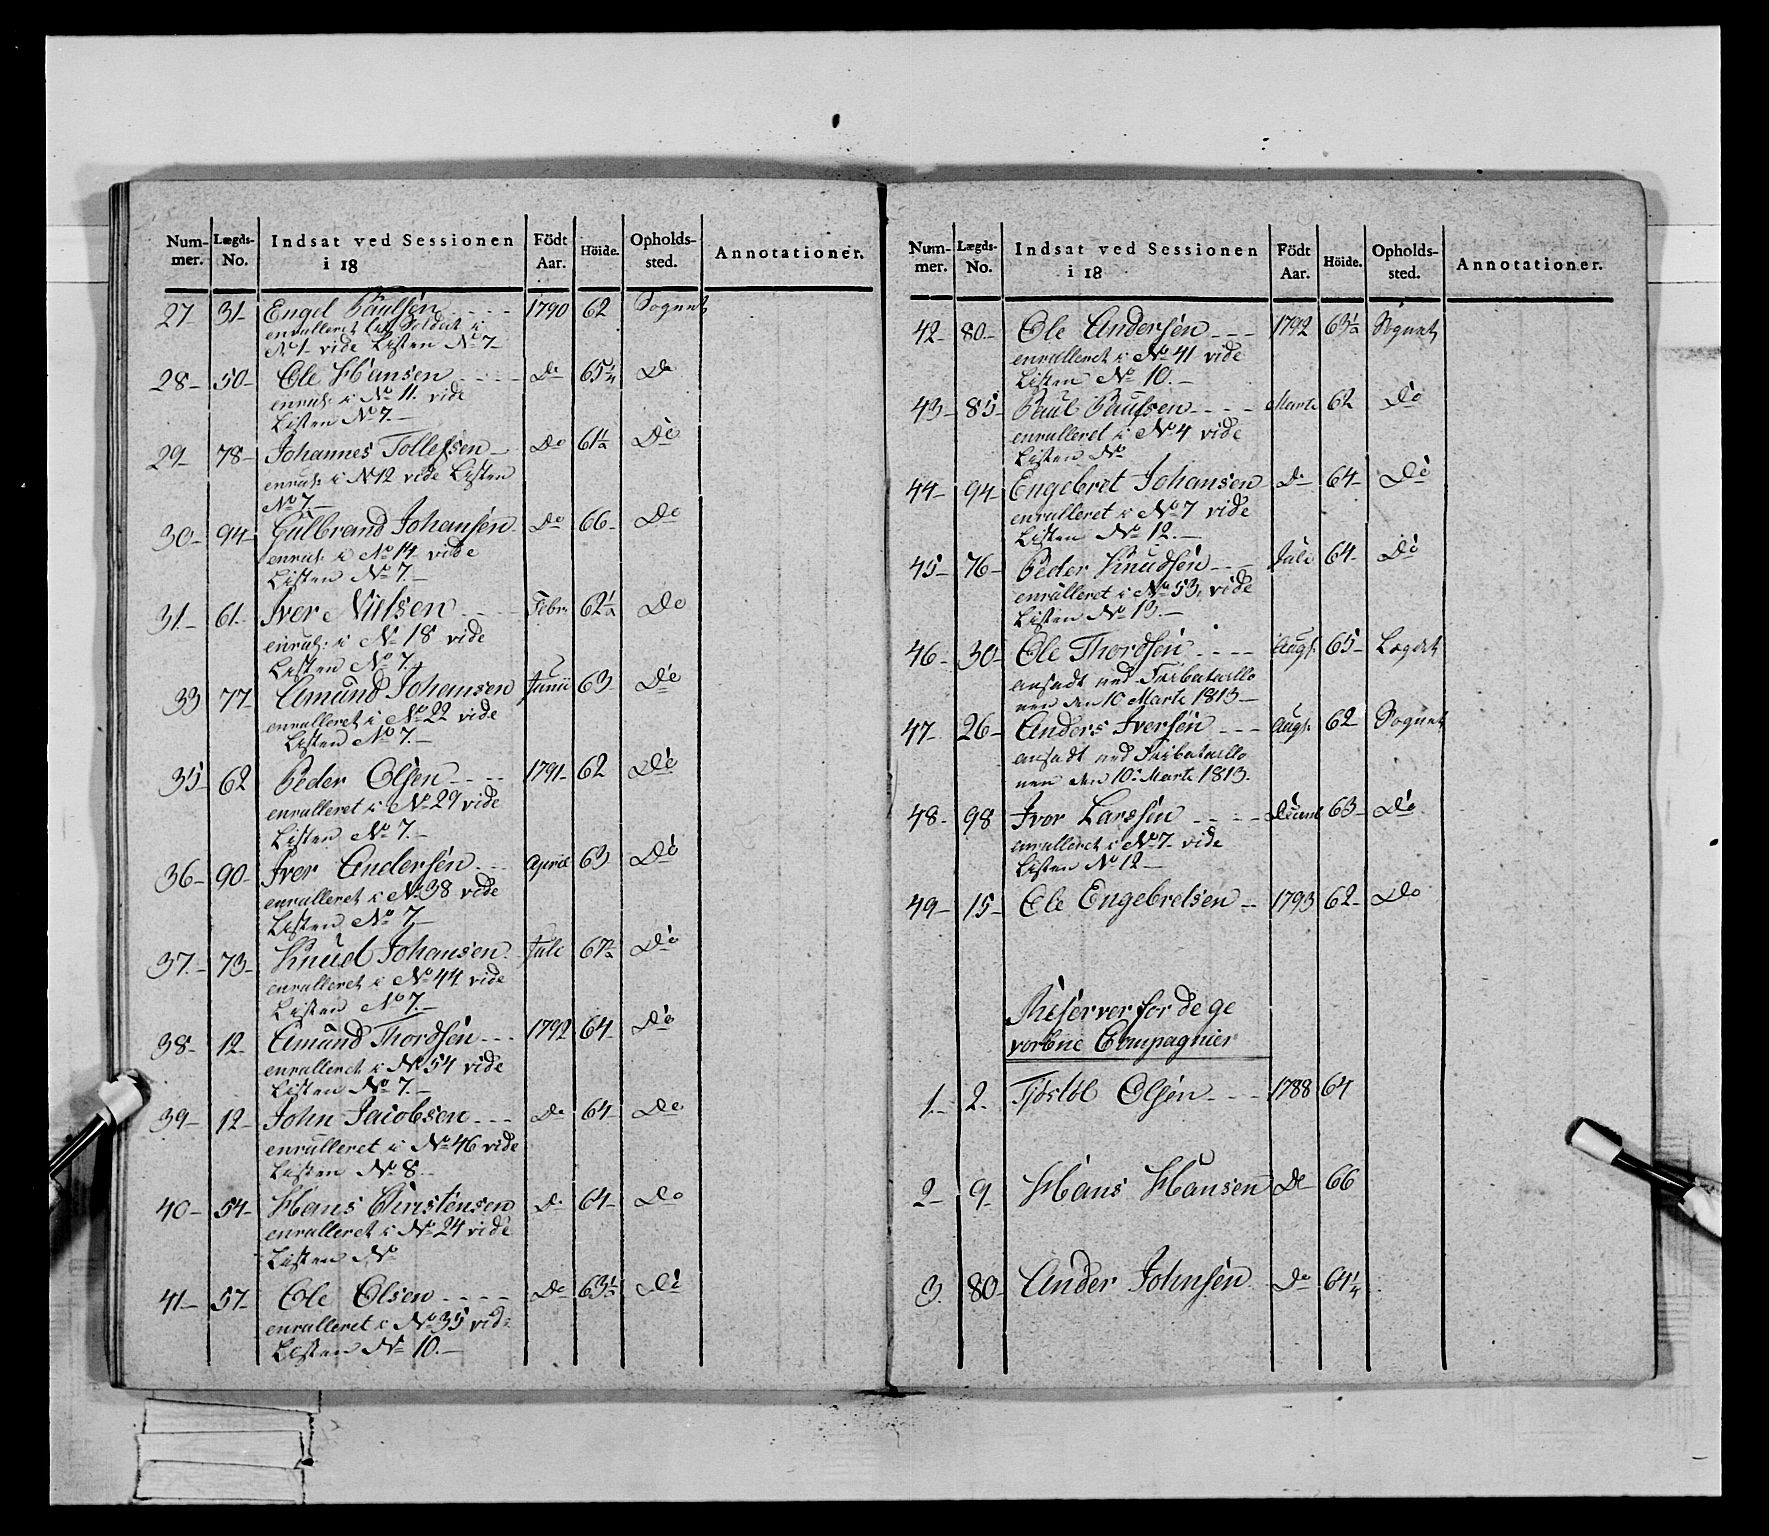 Num- Lægds- Indsat ved Sessionen Födt Höide. Opholds- Annotationer.
mer. No. i 18 Aar. sted.
27- 31- Engel Paulsen 1790 62 Sognet
enrulleret til Soldat i
No 1- vide Listen No 7-
28- 50- Ole Hansen Do 65 1/4 Do
enrul: i No 11. vide
Listen No 7.-
29- 78- Johannes Tollefsen Do 61 1/2 Do
enrul: i No 12 vide Listen
No 7.-
30- 94- Gulbrand Johansen Do 66- Do
enrul: i No 14 vide
Listen No 7.-
31- 61- Iver Nielsen Febr. 62 1/2 Do
enrul: i No 18 vide
Listen No 7.-
33 77- Amund Johansen Junii 63 Do
enrulleret i No 22 vide
Listen No 7.-
35- 62 Peder Olsen 1791- 62 Do
enrulleret i No 29 vide
Listen No 7.-
36- 90- Iver Andersen April 63 Do
enrulleret i No 38 vide
Listen No 7.-
37- 73- Knud Johansen Juli 67 1/2 Do
enrulleret i No 44 vide
Listen No 7.-
38- 12- Amund Thordsen 1792 64- Do
enrulleret i No 54 vide
Listen No 7.-
39- 12- John Jacobsen Do 64- Do
enrulleret i No 46 vide
Listen No 8.-
40- 54- Hans Christensen Do 64- Do
enrulleret i No 24 vide
Listen No
41- 57- Ole Olsen Do 63 1/2 Do
enrulleret i No 35 vide
Listen No 10.-
Num- Lægds- Indsat ved Sessionen Födt Höide. Opholds- Annotationer.
mer. No. i 18 Aar. sted.
42- 80- Ole Andersen 1792 63 1/2 Sognet
enrulleret i No 41 vide
Listen No 10.-
43- 85- Paul Paulsen Marti 62 Do
enrulleret i No 4 vide
Listen No
44- 94- Engebret Johansen Do 64- Do
enrulleret i No 7 vide
Listen No 12.-
45- 76- Peder Knudsen Juli 64- Do
enrulleret i No 53. vide
Listen No 13.-
46- 30- Ole Thordsen Augt. 65- Lægdet
ansadt ved
nen den 10 Marti 1813-
47- 26- Anders Iversen Augt. 62 Sognet
ansadt ved
nen den 10 Marti 1813.
48- 98 Iver Larssen 63- Do
enrulleret i No 7- vide
Listen No 12-
49- 15- Ole Engebretsen 1793 62- Do
Reserver for de ge
vorbne Compagnier
1- 2- Tjöstöl Olsen 1788 64
2- 9- Hans Hansen Do 66
3. 80- Ander Johnsen Do 64 1/4